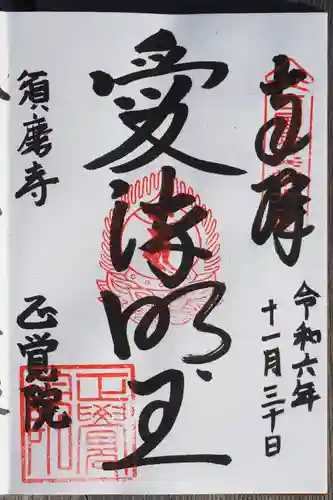 奉拝
令和六年
十一月三十日
愛染明王
須磨寺
正覚院
正覺院